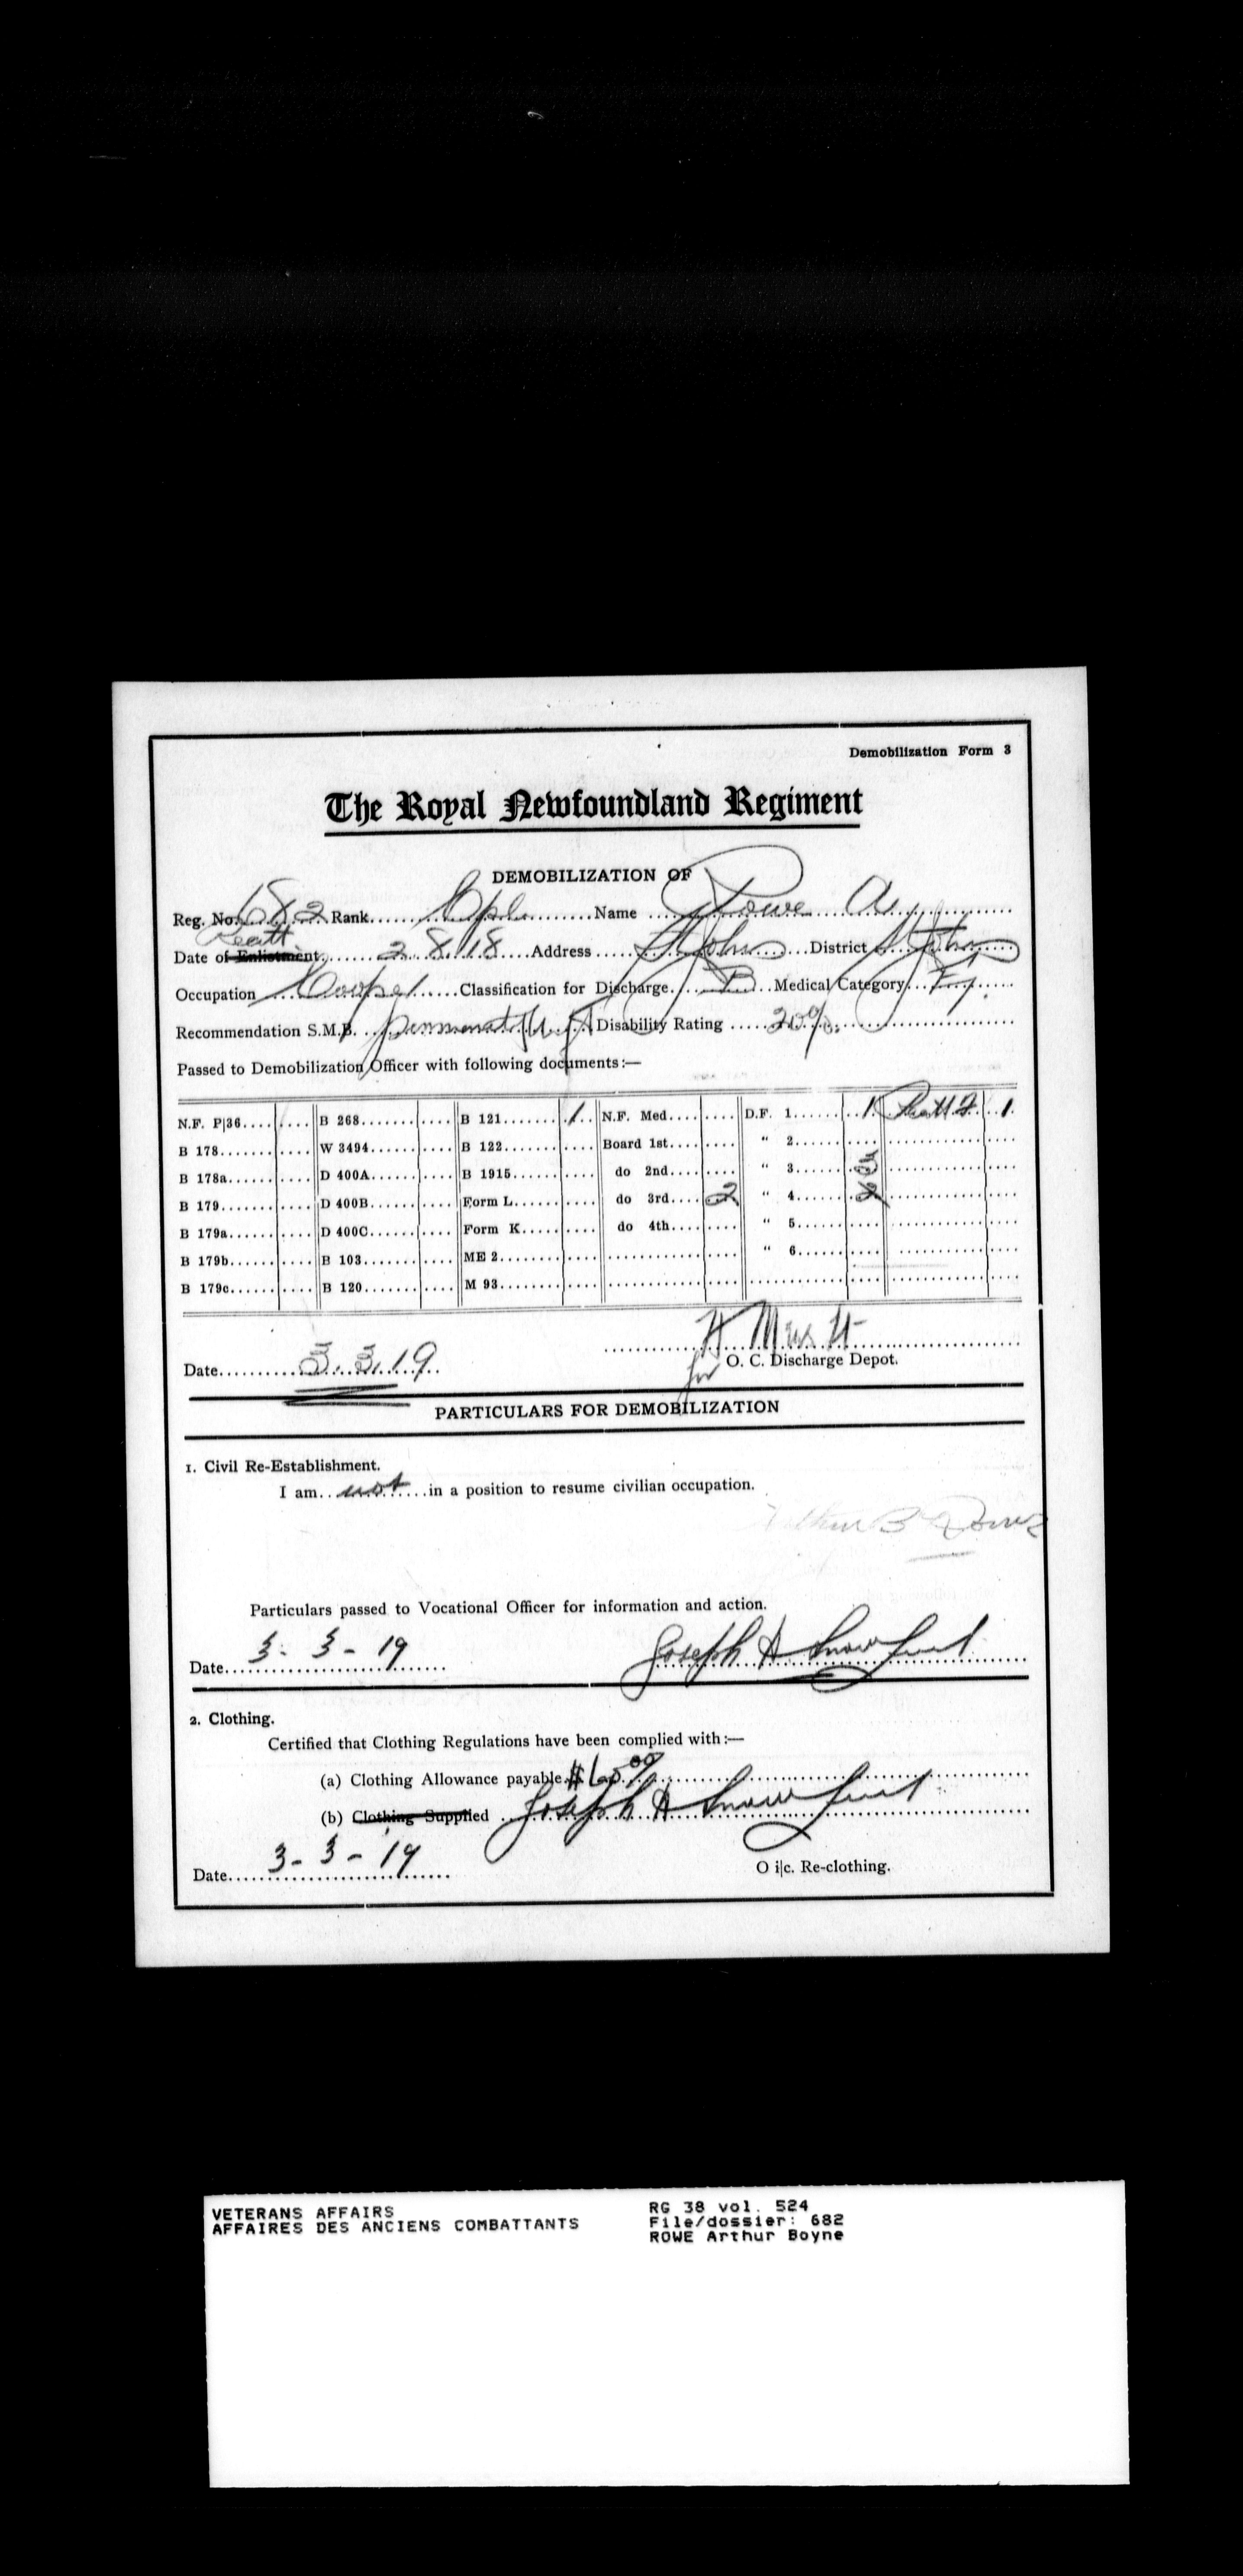 Demobilization Form 3
The Royal Newfoundland Regiment
DEMOBILIZATION OF
Reg. No. 682 Rank Cpl Name Rowe A.
Reatt
Date of Enlistment 2.8.18 Address St Johns District St Johns
Occupation Cooper Classification for Discharge B Medical Category E
Recommendation S.M.B. Permanently Unfit Disability Rating 20%
Passed to Demobilization Officer with following documents:—
N.F. P|36 B 268 B 121 1 N.F. Med D.F. 1 1 1
B 178 W 3494 B 122 Board 1st " 2
B 178a D 400A B 1915 do 2nd " 3
B 179 D 400B Form L do 3rd 2 " 4
B 179a D 400C Form K do 4th " 5
B 179b B 103 ME 2 " 6
B 179c B 120 M 93
Date 3.3.19
for O. C. Discharge Depot.
PARTICULARS FOR DEMOBILIZATION
1. Civil Re-Establishment.
I am not in a position to resume civilian occupation.
Arthur B Rowe
Particulars passed to Vocational Officer for information and action.
Date 3-3-19 Joseph H Snow
2. Clothing.
Certified that Clothing Regulations have been complied with:—
(a) Clothing Allowance payable $60.00
(b) Clothing Supplied Joseph H Snow
Date 3-3-19 O i|c. Re-clothing.
VETERANS AFFAIRS RG 38 vol. 524
AFFAIRES DES ANCIENS COMBATTANTS File/dossier: 682
ROWE Arthur Boyne